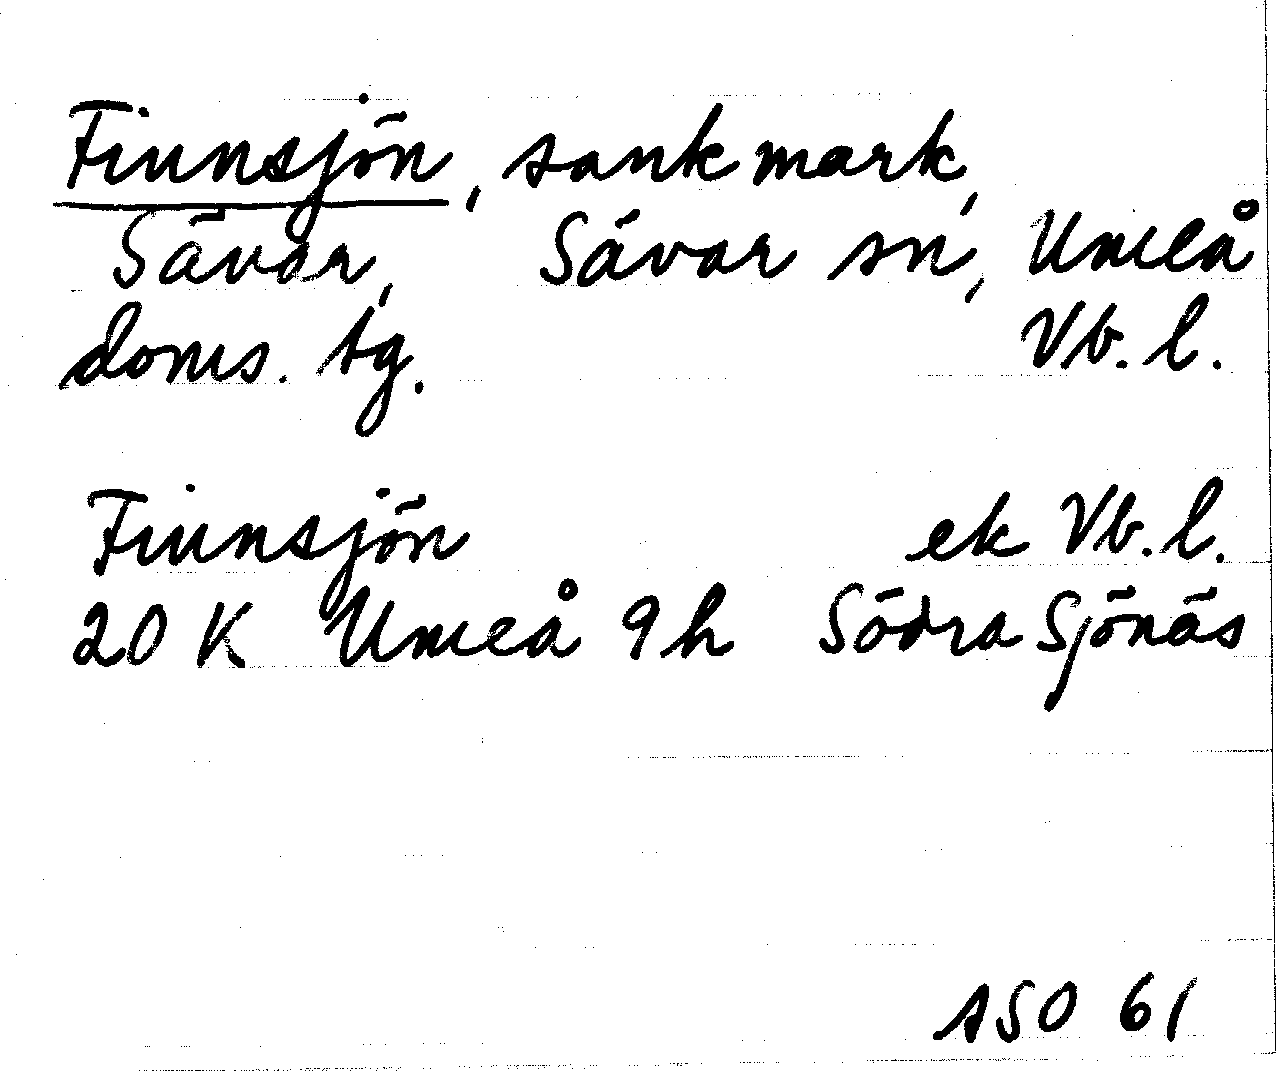 Finnsjön, sankmark,
Sävar, Sävar sn, Umeå
doms. tg. Vb. l.
Finnsjön ek Vb. l.
20 K Umeå 9h Södra Sjönäs
ASO 61